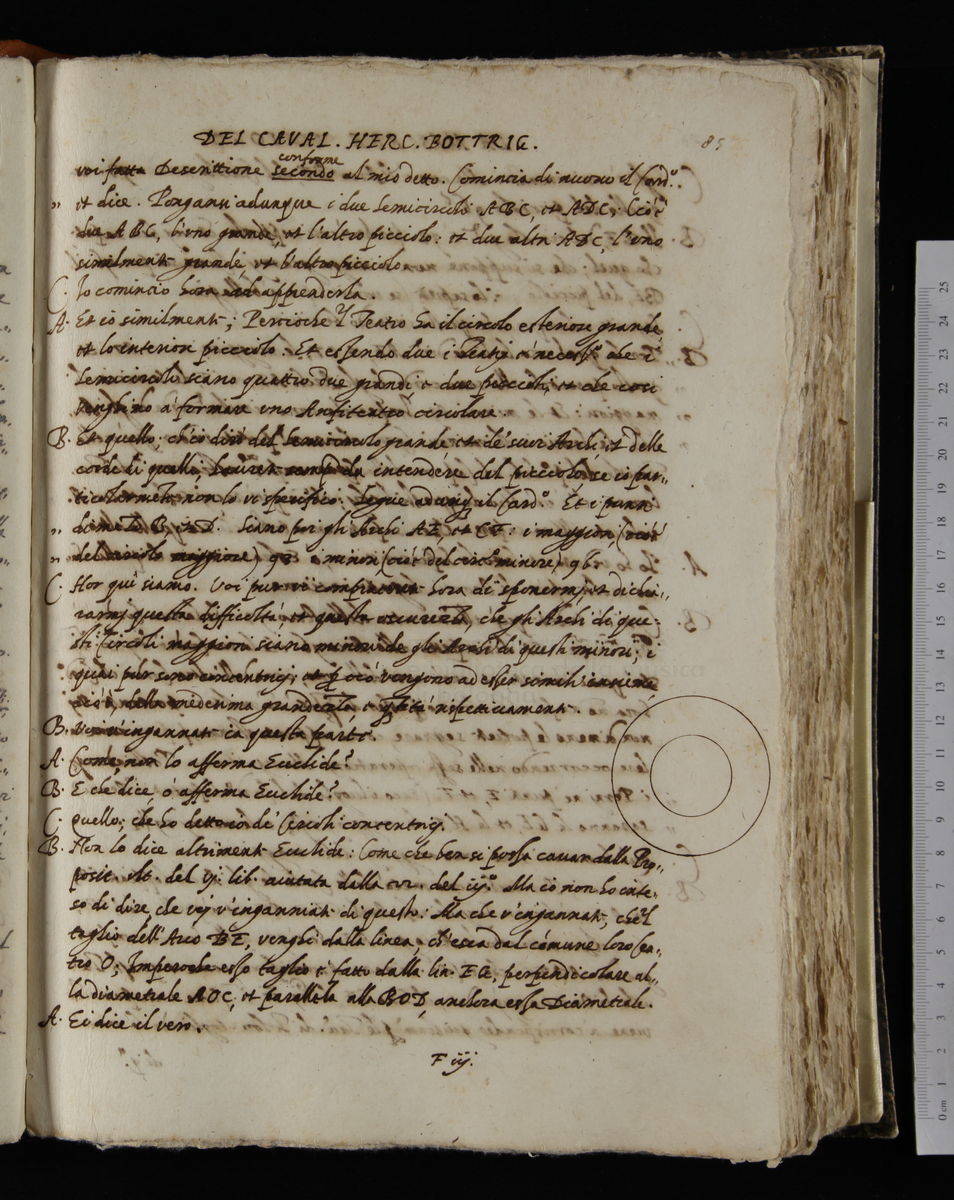 DEL CAVAL. HERC. BOTTRIG. 85
conforme
voi fatta Descrittione secondo al mio detto. Comincia di nuovo il Card.º
" et dice. Pongansi adunque i due Semicircoli ABC, et ADC, cioè
due ABC, l'uno grande, et l'altro picciolo: et due altri ADC, l'uno
similmente grande, et l'altro picciolo.
C. Io comincio hora ad apprenderla.
A. Et io similmente; Percioche 'l Teatro ha il circolo esteriore grande
et lo interior picciolo. Et essendo due i Teatri è necessº. che i
Semicircoli siano quattro due grandi, e due piccoli, et che così
venghino à formare uno Anfiteatro circolare.
B. Et quello, ch'io dirò del Semicircolo grande et de' suoi Archi, et delle
corde di quelli, da intendere del picciolo, se io par-
ticolarmetᵉ. non lo vi specifico. Segue adunq; il Card.º Et i punti
" di metà B, et D. Siano poi gli Archi AE, et CF: i maggiori, (cioè
" del circolo maggiore) e i minori (cioè del circolº minore)
C. Hor quì siamo. Voi pur vi hora di sponermi, et dichia-
rarmi questa difficoltà, et questa oscurezza, che gli Archi di que-
sti Circoli maggiori siano minori de gli Archi di questi minori; i
quai pur sono concentrici, et p ciò vengono ad esser simili insieme
cioè, della medesima grandezza e rispettivamente.
B. V'ingannate in questa parte.
A. Come, non lo afferma Euclide?
B. E che dice, ò afferma Euclide?
C. Quello, che ho detto io de' Circoli concentrici.
B. Non lo dice altrimente Euclide: Come che ben si possa cavar dalla Pro-
posit. ult. del vj. lib. aiutata dalla del iij.º Ma io non ho inte-
so di dire, che voi v'inganniate di questo. Ma che v'ingannate, che 'l
taglio dell'Arco BE, venghi dalla linea, ch'esca dal comune loro Cen-
tro O; Imperoche esso taglio è fatto dalla lin. EG, perpendicolare al-
la diametrale AOC, et parallela alla BOD, anchora essa Diametrale.
A. Ei dice il vero.
F iij.